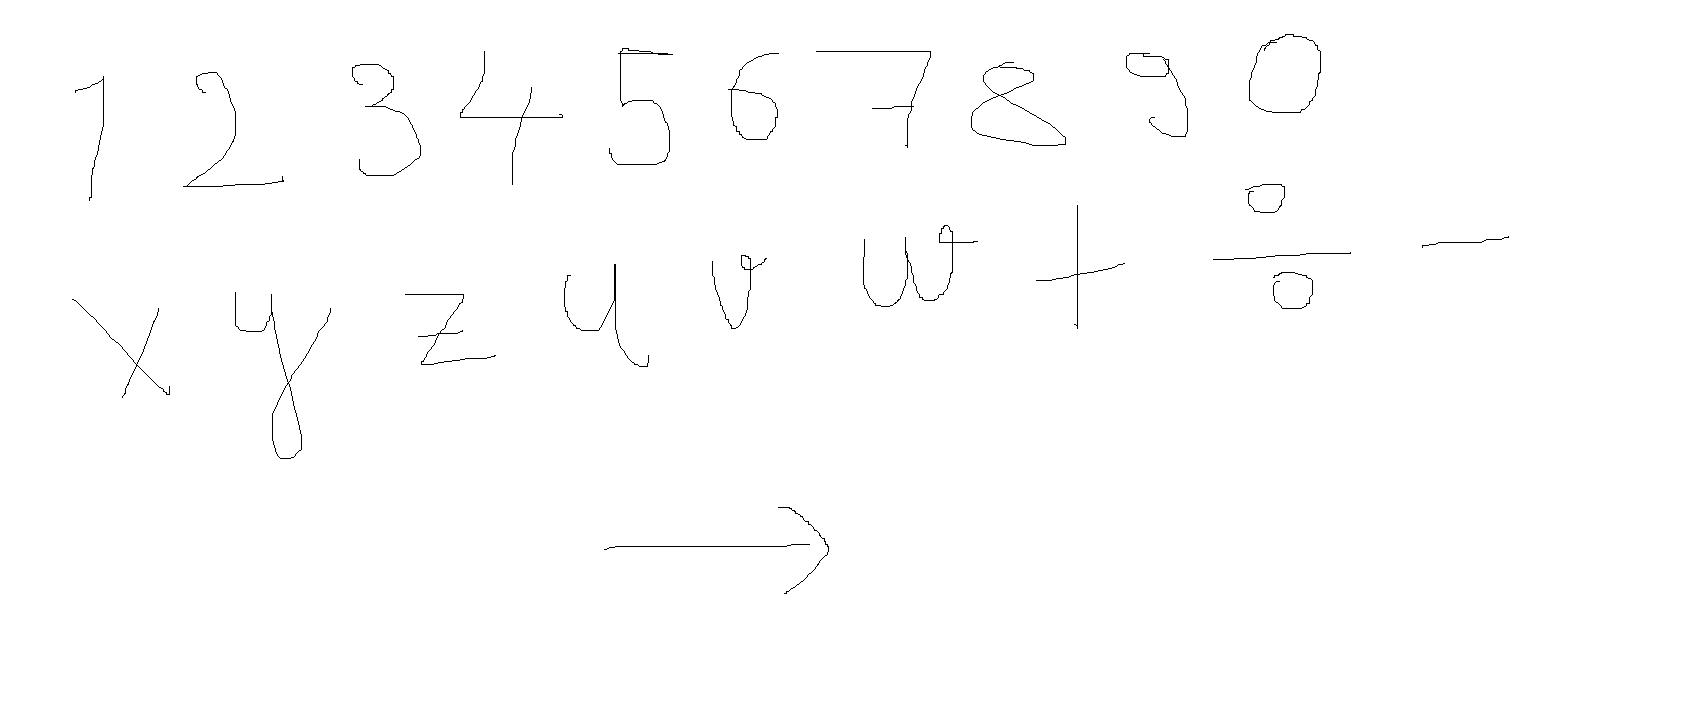 1 2 3 4 5 6 7 8 9 0
x y z u v w + ÷ -
→